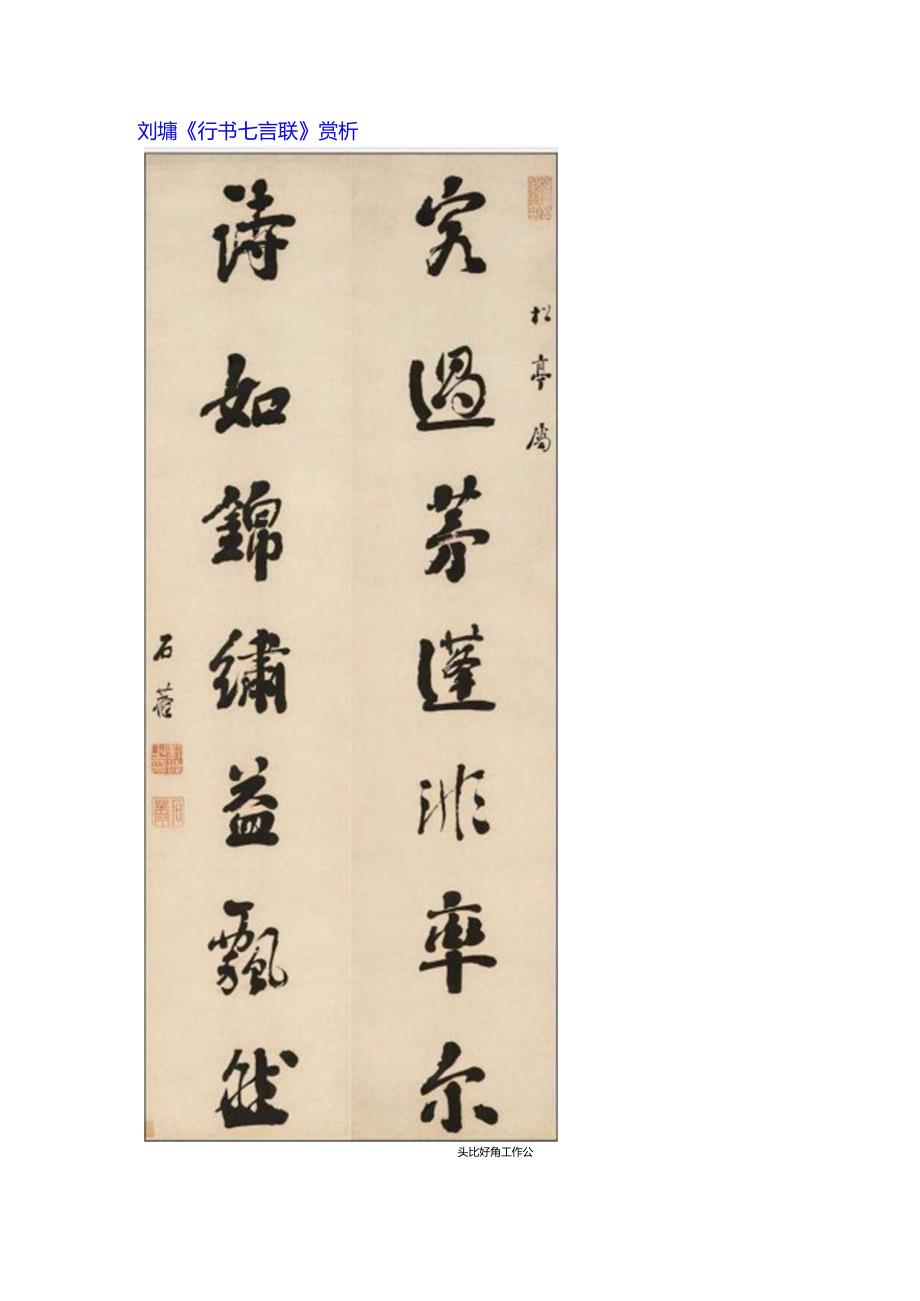 刘墉《行书七言联》赏析
松亭屬
客過茅蓬非率尔
詩如錦繡益飄然
石菴
头比好角工作公